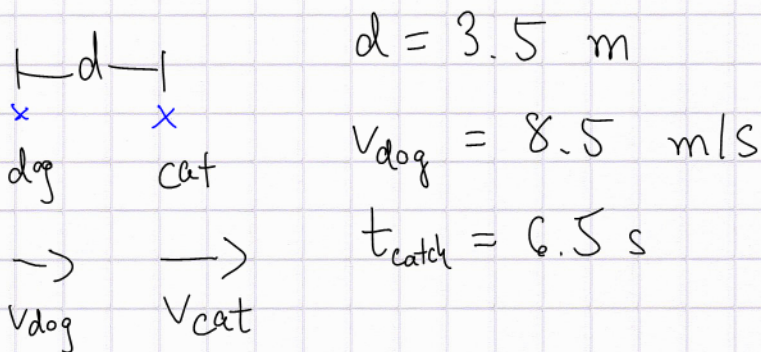 d
dog cat
v_dog v_cat
d = 3.5 m
v_dog = 8.5 m/s
t_catch = 6.5 s